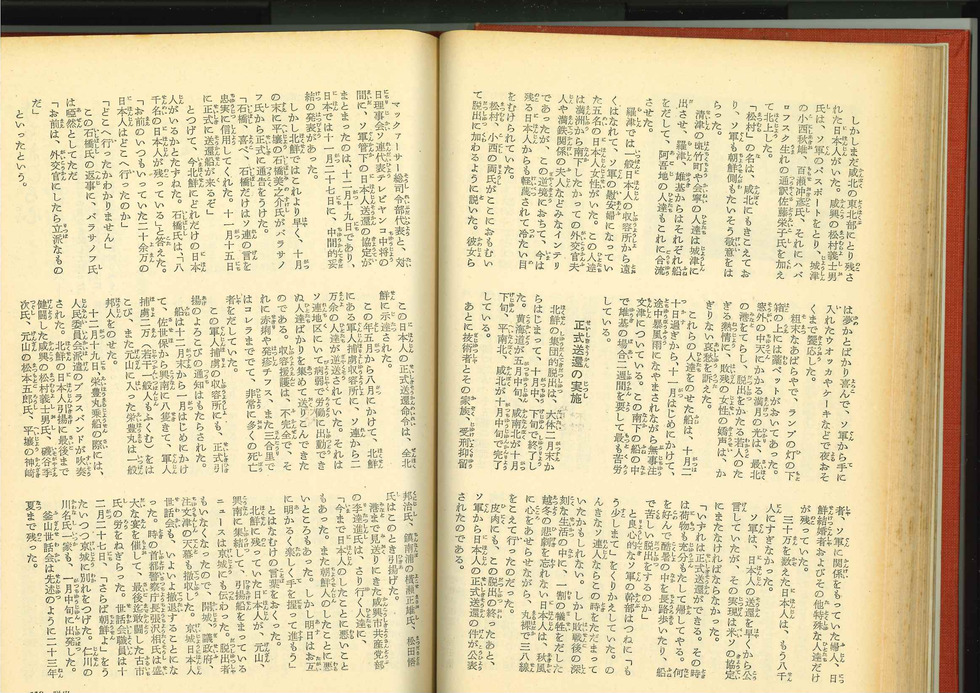 しかしまだ咸北の東北部にとり残さ
れた日本人がいた。咸興の松村義士男
氏は、ソ軍のパスポートをとり、城津
の小西秋雄、百瀬和彦氏、それにハバ
ロフスク生れの通訳佐藤栄子氏を加え
て北上した。
「松村」の名は、咸北にもきこえてお
り、ソ軍も朝鮮側もたいそう敬意をは
らった。
清津の頃竹町や会寧の人達は城津に
出させ、羅津、雄基からはそれぞれ船
をだして、阿吾地の人達もこれに合流
させた。
羅津では一般日本人の収容所から遠
くはなれて、ソ軍の慰安婦になってい
た五名の日本人女性がいた。この人達
は満洲から南下したかつての外交官夫
人や満鉄関係の夫人などみなインテリ
であったが、この逆境におちて、今は
他の日本人からも軽蔑されて冷たい目
をむけられていた。
松村、小西の両氏がここにおもむい
て脱出に加わるように説いた。彼女ら
は夢かとばかり喜んで、ソ軍から手に
入れたウオッカやケーキなどで夜おそ
くまで饗応した。
粗末なあばらやで、ランプの灯の下
箱の上には藁ベットがおいてあった。
窓外の中天にかかる満月の光は、最北
の港をてらし、脱出をかたる若人のた
ぎる熱情に、敗残の女性の嬌声は、か
ぎりない哀愁を訴えた。
これらの人達をのせた船は、十月二
十日過ぎから、十一月はじめにかけて、
途中暴風雨になやまされながら無事注
文津についている。この南下の船の中
で雄基の場合二週間を要して最も苦労
している。
正式送還の実施
北鮮の集団的脱出は、大体二月末か
らはじまって、十月中、下旬で終了し
た。黄海道が五月中旬、咸南北が十月
下旬、平南北、咸北が十月中旬で完了
している。
あとに技術者とその家族、受刑抑留
者、ソ軍に関係をもっていた婦人、日
鮮結婚者およびその他特殊な人達だけ
が残っていた。
三十万を数えた日本人は、もう八千
人にすぎなかった。
ソ軍は、日本人の送還を早くから公
言していたが、その実現は米ソの協定
にまたなければならなかった。
「いずれは正式送還ができる。その時
は荷物も充分もたして帰してやる。何
を好んで酷暑の中を昼夜歩いたり、船
で苦しい脱出をするのか」
と良心的なソ軍の幹部はつねに「も
う少しまて」をくりかえしていた。の
んきな人達ならこの時をだまってま
いたかもしれない。しかし敗戦後の深
刻な生活の中に、一割の犠牲をだした
越冬の悲劇を忘れない日本人は、秋風
に心をあせらせながら、丸裸で三八線
をこえて行ったのだった。
皮肉にも、この脱出の終ったあと、
ソ軍から日本人の正式送還の件が公表
されたのである。
マックアーサー総司令部代表と、対
日理事会ソ連代表テレビヤンコ中将の
間に、ソ軍管下の日本人送還の協定が
まとまったのは、十二月十九日であり、
日本では十一月二十七日に、中間的妥
結の発表があった。
しかし北鮮ではこれより早く、十月
の末に平壌の石橋美之介氏がバラサノ
フ氏から正式に通告をうけた。
「石橋、喜べ、石橋だけはソ連の言を
忠実に信用してくれた。十一月十五日
に正式に送還船が来るぞ」
とつげて、今北鮮にどれだけの日本
人がいるかとたずねた。石橋氏は、「八
千名の日本人が残っている」と答えた。
「お前のいつもいっていた二十余万の
日本人はどこへ行ったのか」
「どこへ行ったかわかりません」
この石橋氏の返事に、バラサノフ氏
は啞然としてただ
「お前は、外交官にしたら立派なもの
だ」
といったという。
この日本人の正式送還命令は、全北
鮮に示達された。
この年五月から八月にかけて、北鮮
にある軍人捕虜収容所に、ソ連から二
万余の人達が逆送されていた。それは
ソ連地区にいて、病弱で労働に出動でき
ぬ人達ばかりを集めて送りこんできた
のである。収容援護は、不完全で、そ
れに赤痢や発疹チフス、また古茂山里で
はコレラまででて、非常に多くの死亡
者をだしていた。
この軍人捕虜の収容所にも、正式引
揚のよろこびの通知はもたらされた。
船は十二月末から一月はじめにかけ
て、佐世保から興南に八隻きて、軍人
捕虜二万（若干一般人もふくむ）をは
こび、また元山に入った栄豊丸は一般
邦人をのせた。
十二月十九日、栄豊丸乗船の際には、
人民委員会派遣のブラスバンドが吹奏
された。北鮮の日本人引揚に最後まで
健闘した咸興の松村義士男氏、磯谷季
次氏、元山の松本五郎氏、平壌の神崎
邦治氏、鎮南浦の横瀬正雄氏、松田儕
氏はこのとき引揚げた。
港まで見送りにきた咸興市共産党部
の李達進氏は、さり行く人達に、
「今まで日本人のしたことに悪いこと
もあった。また朝鮮人のしたことに悪
いところもあった。しかし明日はお互
に明かるく楽しく手を握って進もう」
とはなむけの言葉をおくった。
北鮮に残っていた日本人が、元山、
興南に集結して、引揚船をまっている
ニュースは京城にも伝わった。脱出者
もいなくなったので、開城、議政府、
注文津の天幕も撤収した。京城日本人
世話会も、いよいよ撤退することにな
った。時の首都警察庁長張沢相氏は盛
大な宴を催して、最後迄敢闘した古市
氏の労をねぎらった。世話会職員は十
二月二十七日、「さらば朝鮮よ」をう
たいつつ京城に別れをつげた。仁川の
川名氏一家も、一月中旬に出発した。
釜山世話会は先述のように二十三年
夏まで残った。